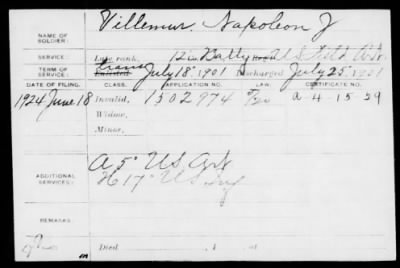 NAME OF SOLDIER: Villemur, Napoleon J
SERVICE: Late rank, 12" Batty U S Field Art.
TERM OF SERVICE: Enlisted July 18" 1901 Discharged July 25" 1901
DATE OF FILING. CLASS. APPLICATION NO. LAW. CERTIFICATE NO.
1924 June 18 Invalid, 1502974 a-4-15-29
Widow,
Minor,
ADDITIONAL SERVICES: A 5" US Art
H 17" US Inf
REMARKS:
Died , at